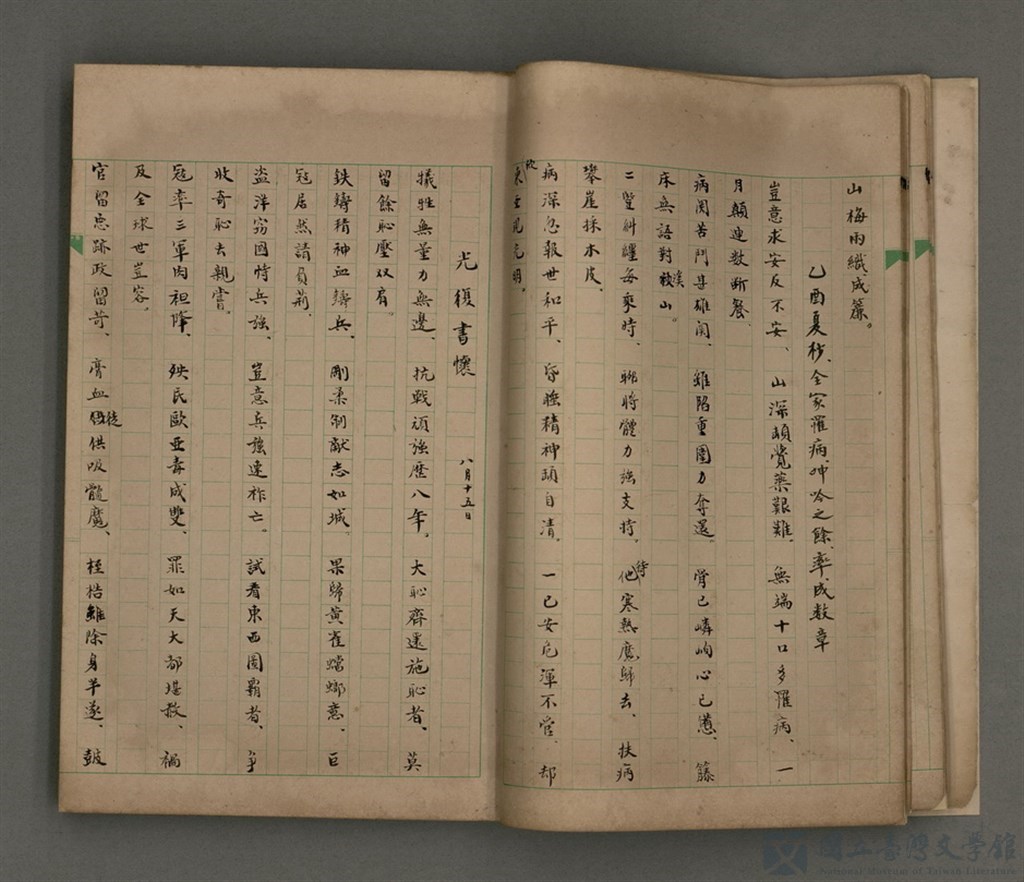 山梅雨織成簾。
乙酉夏秒、全家罹病、呻吟之餘、率成数章
豈意求安反不安、山深頭覺藥艱難、無端十口多罹病、一
月顛連数断餐、
病関苦鬥等雄関、雖陷重圍力奪還。骨已嶙峋心已憊、籐
床無語對溪山。
二豎糾纏每乘時、聊將體力強支持。待他寒熱魔歸去、扶病
攀崖採木皮、
病深忽報世和平、昏強精神頭自清。一己安危渾不管、却
欣
光復書懷 八月十五日
犠牲無量力無邊、抗戰頑強歷八年。大恥齊還施恥者、莫
留餘恥壓双肩。
鉄鑄精神血鑄兵、剛柔制獻志如城、果歸黃雀螳螂意、巨
寇居然請負荊、
盗洋窮國恃兵強、豈意兵強速祚亡。試看東西圖霸者、爭
收奇恥去親嘗。
寇率三軍肉袒降、殃民歐亞毒成雙、罪如天大都堪赦、禍
及全球世豈容、
官留惡跡政留苛、膏血徒供吸髓魔、桎梏雖除身半迯、皷
國立臺灣文學館
National Museum of Taiwan Literature